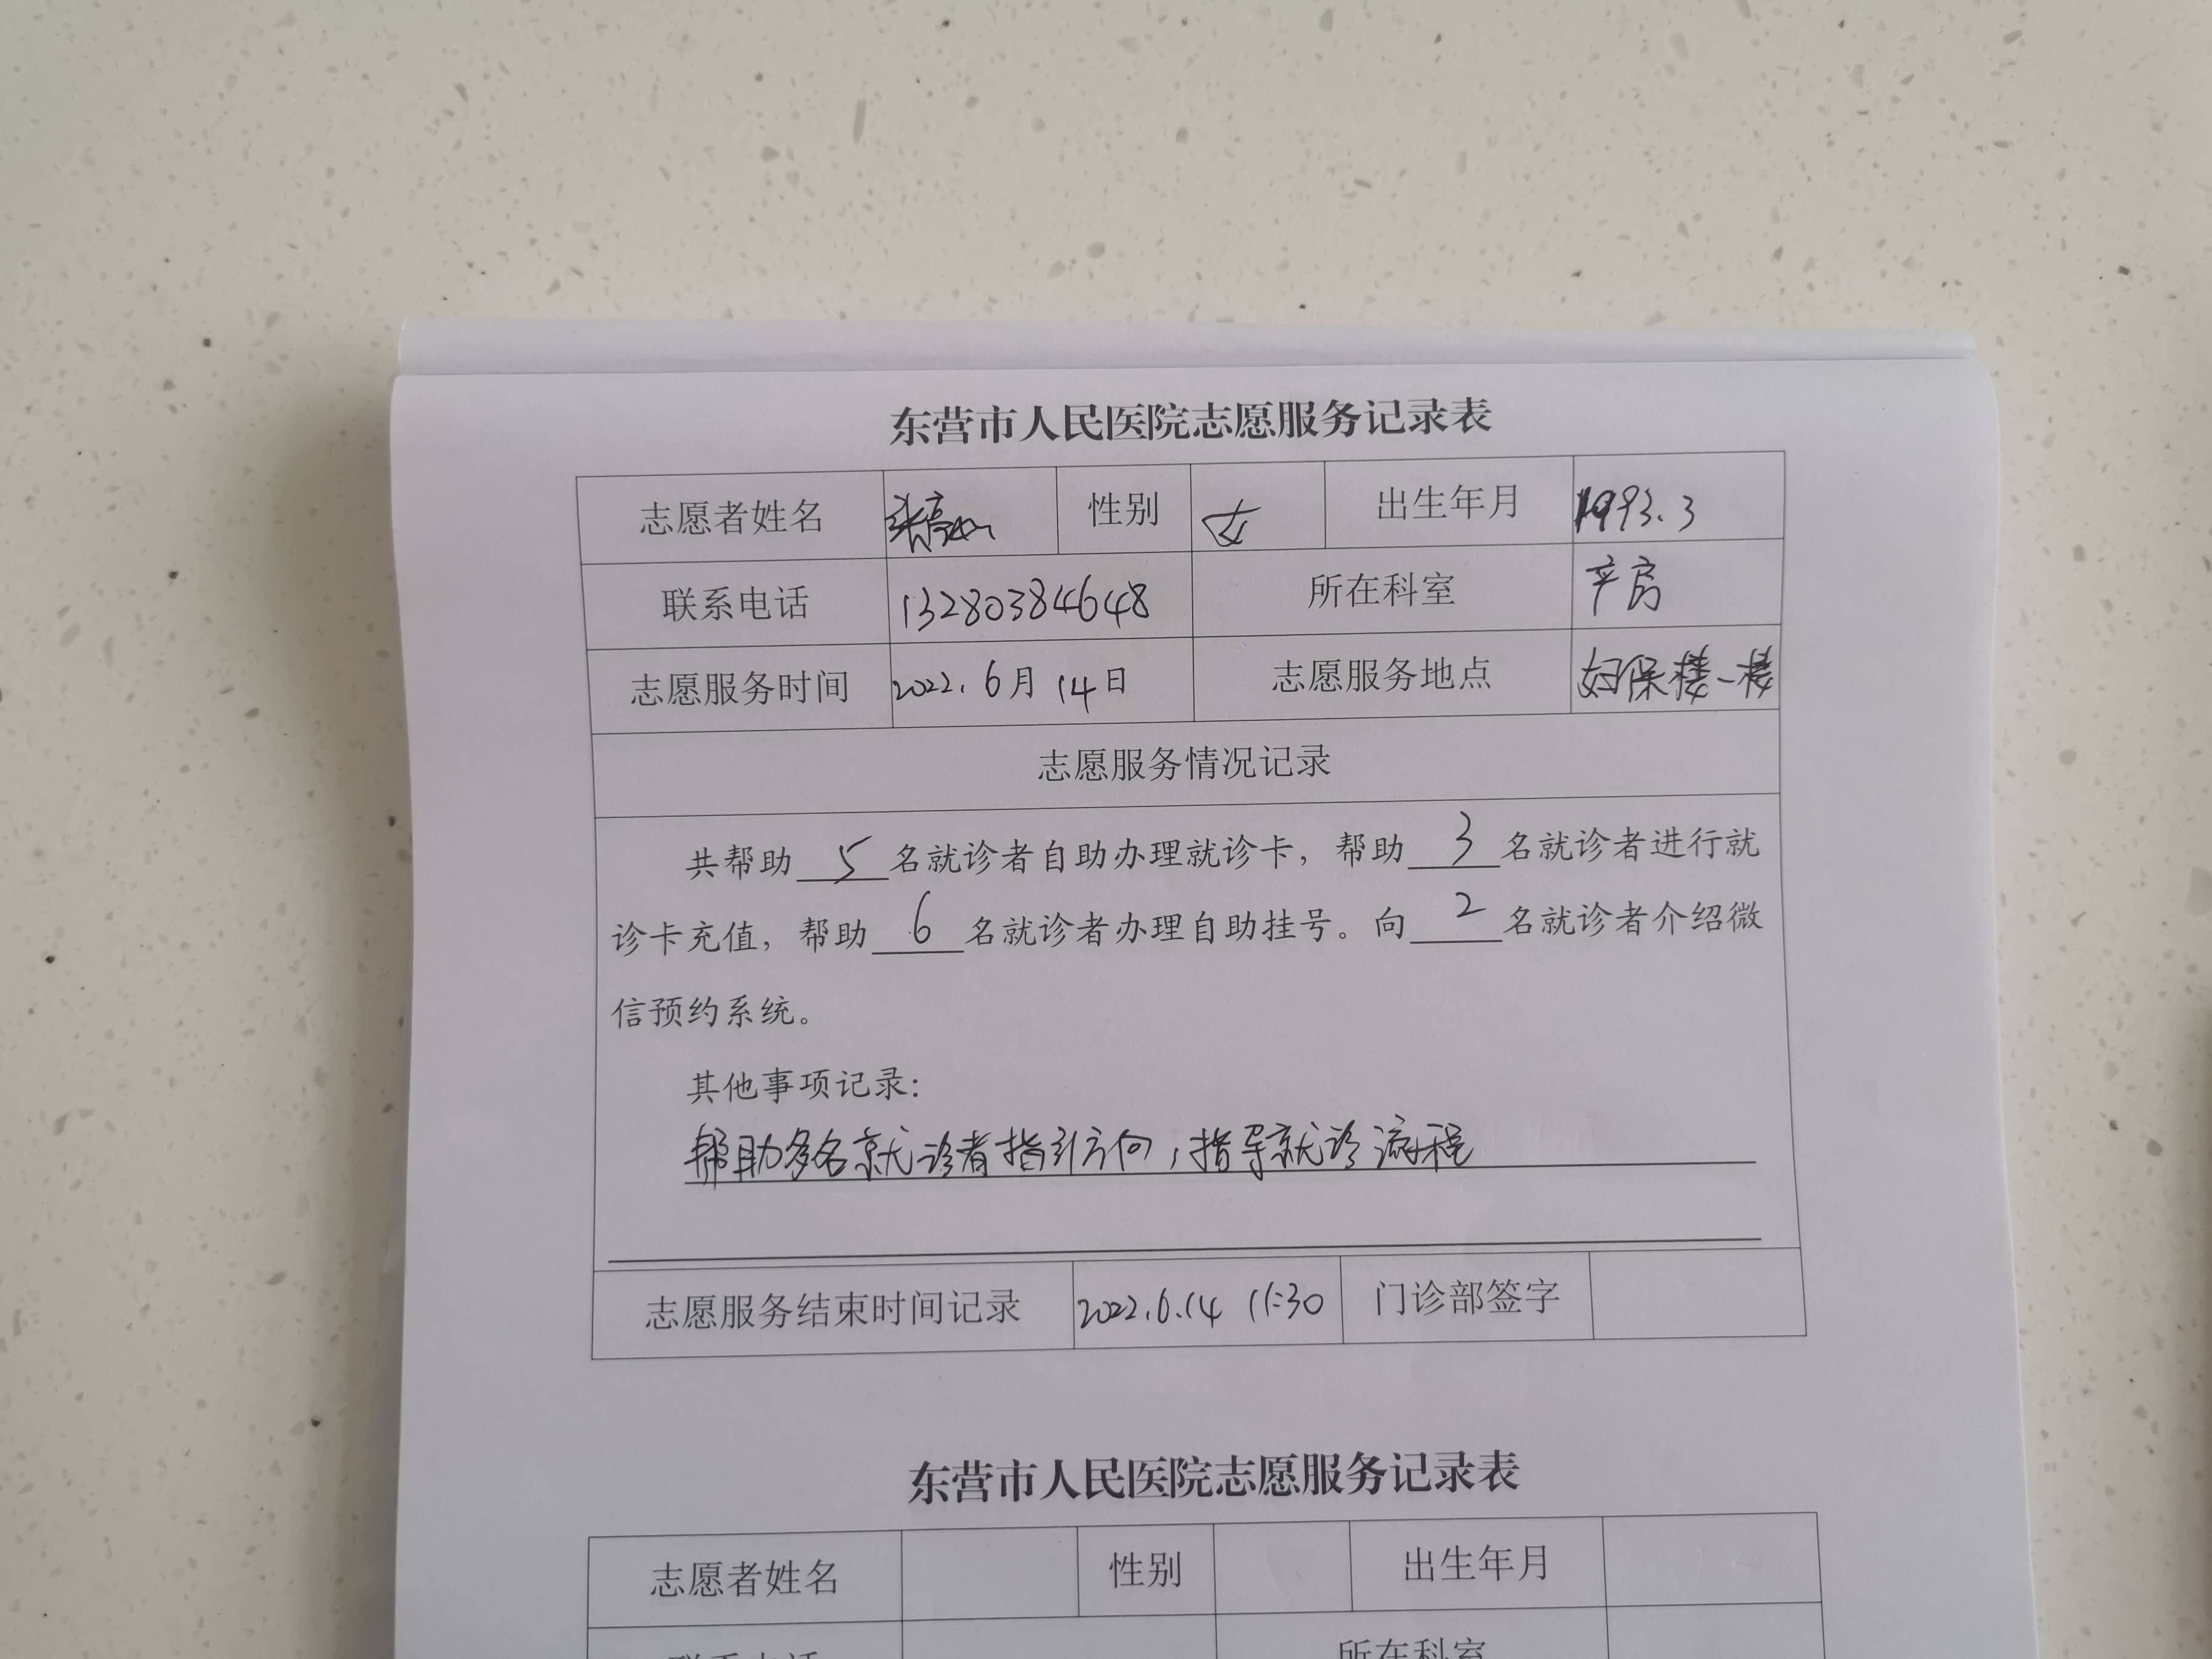 东营市人民医院志愿服务记录表
志愿者姓名 性别 女 出生年月 1993.3
联系电话 13280384648 所在科室 产房
志愿服务时间 2022.6月14日 志愿服务地点 妇保楼一楼
志愿服务情况记录
共帮助 5 名就诊者自助办理就诊卡，帮助 3 名就诊者进行就
诊卡充值，帮助 6 名就诊者办理自助挂号。向 2 名就诊者介绍微
信预约系统。
其他事项记录：
帮助多名就诊者指引方向，指导就诊流程
志愿服务结束时间记录 2022.6.14 11:30 门诊部签字
东营市人民医院志愿服务记录表
志愿者姓名 性别 出生年月
联系电话 所在科室